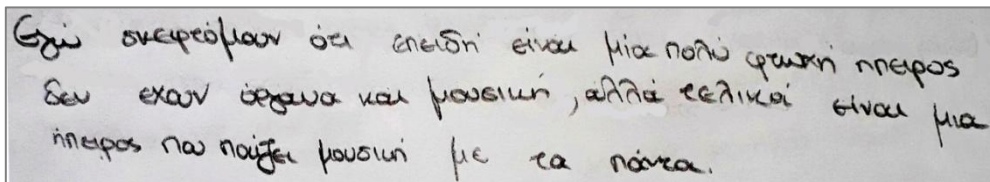 Εγώ σκεφτόμουν ότι επειδή είναι μία πολύ φτωχή ηπειρος
δεν εχουν όργανα και μουσική, αλλά τελικά είναι μια
ήπειρος που παίζει μουσική με τα πάντα.